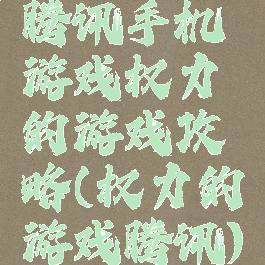 腾讯手机
游戏权力
的游戏攻
略(权力的
游戏腾讯)